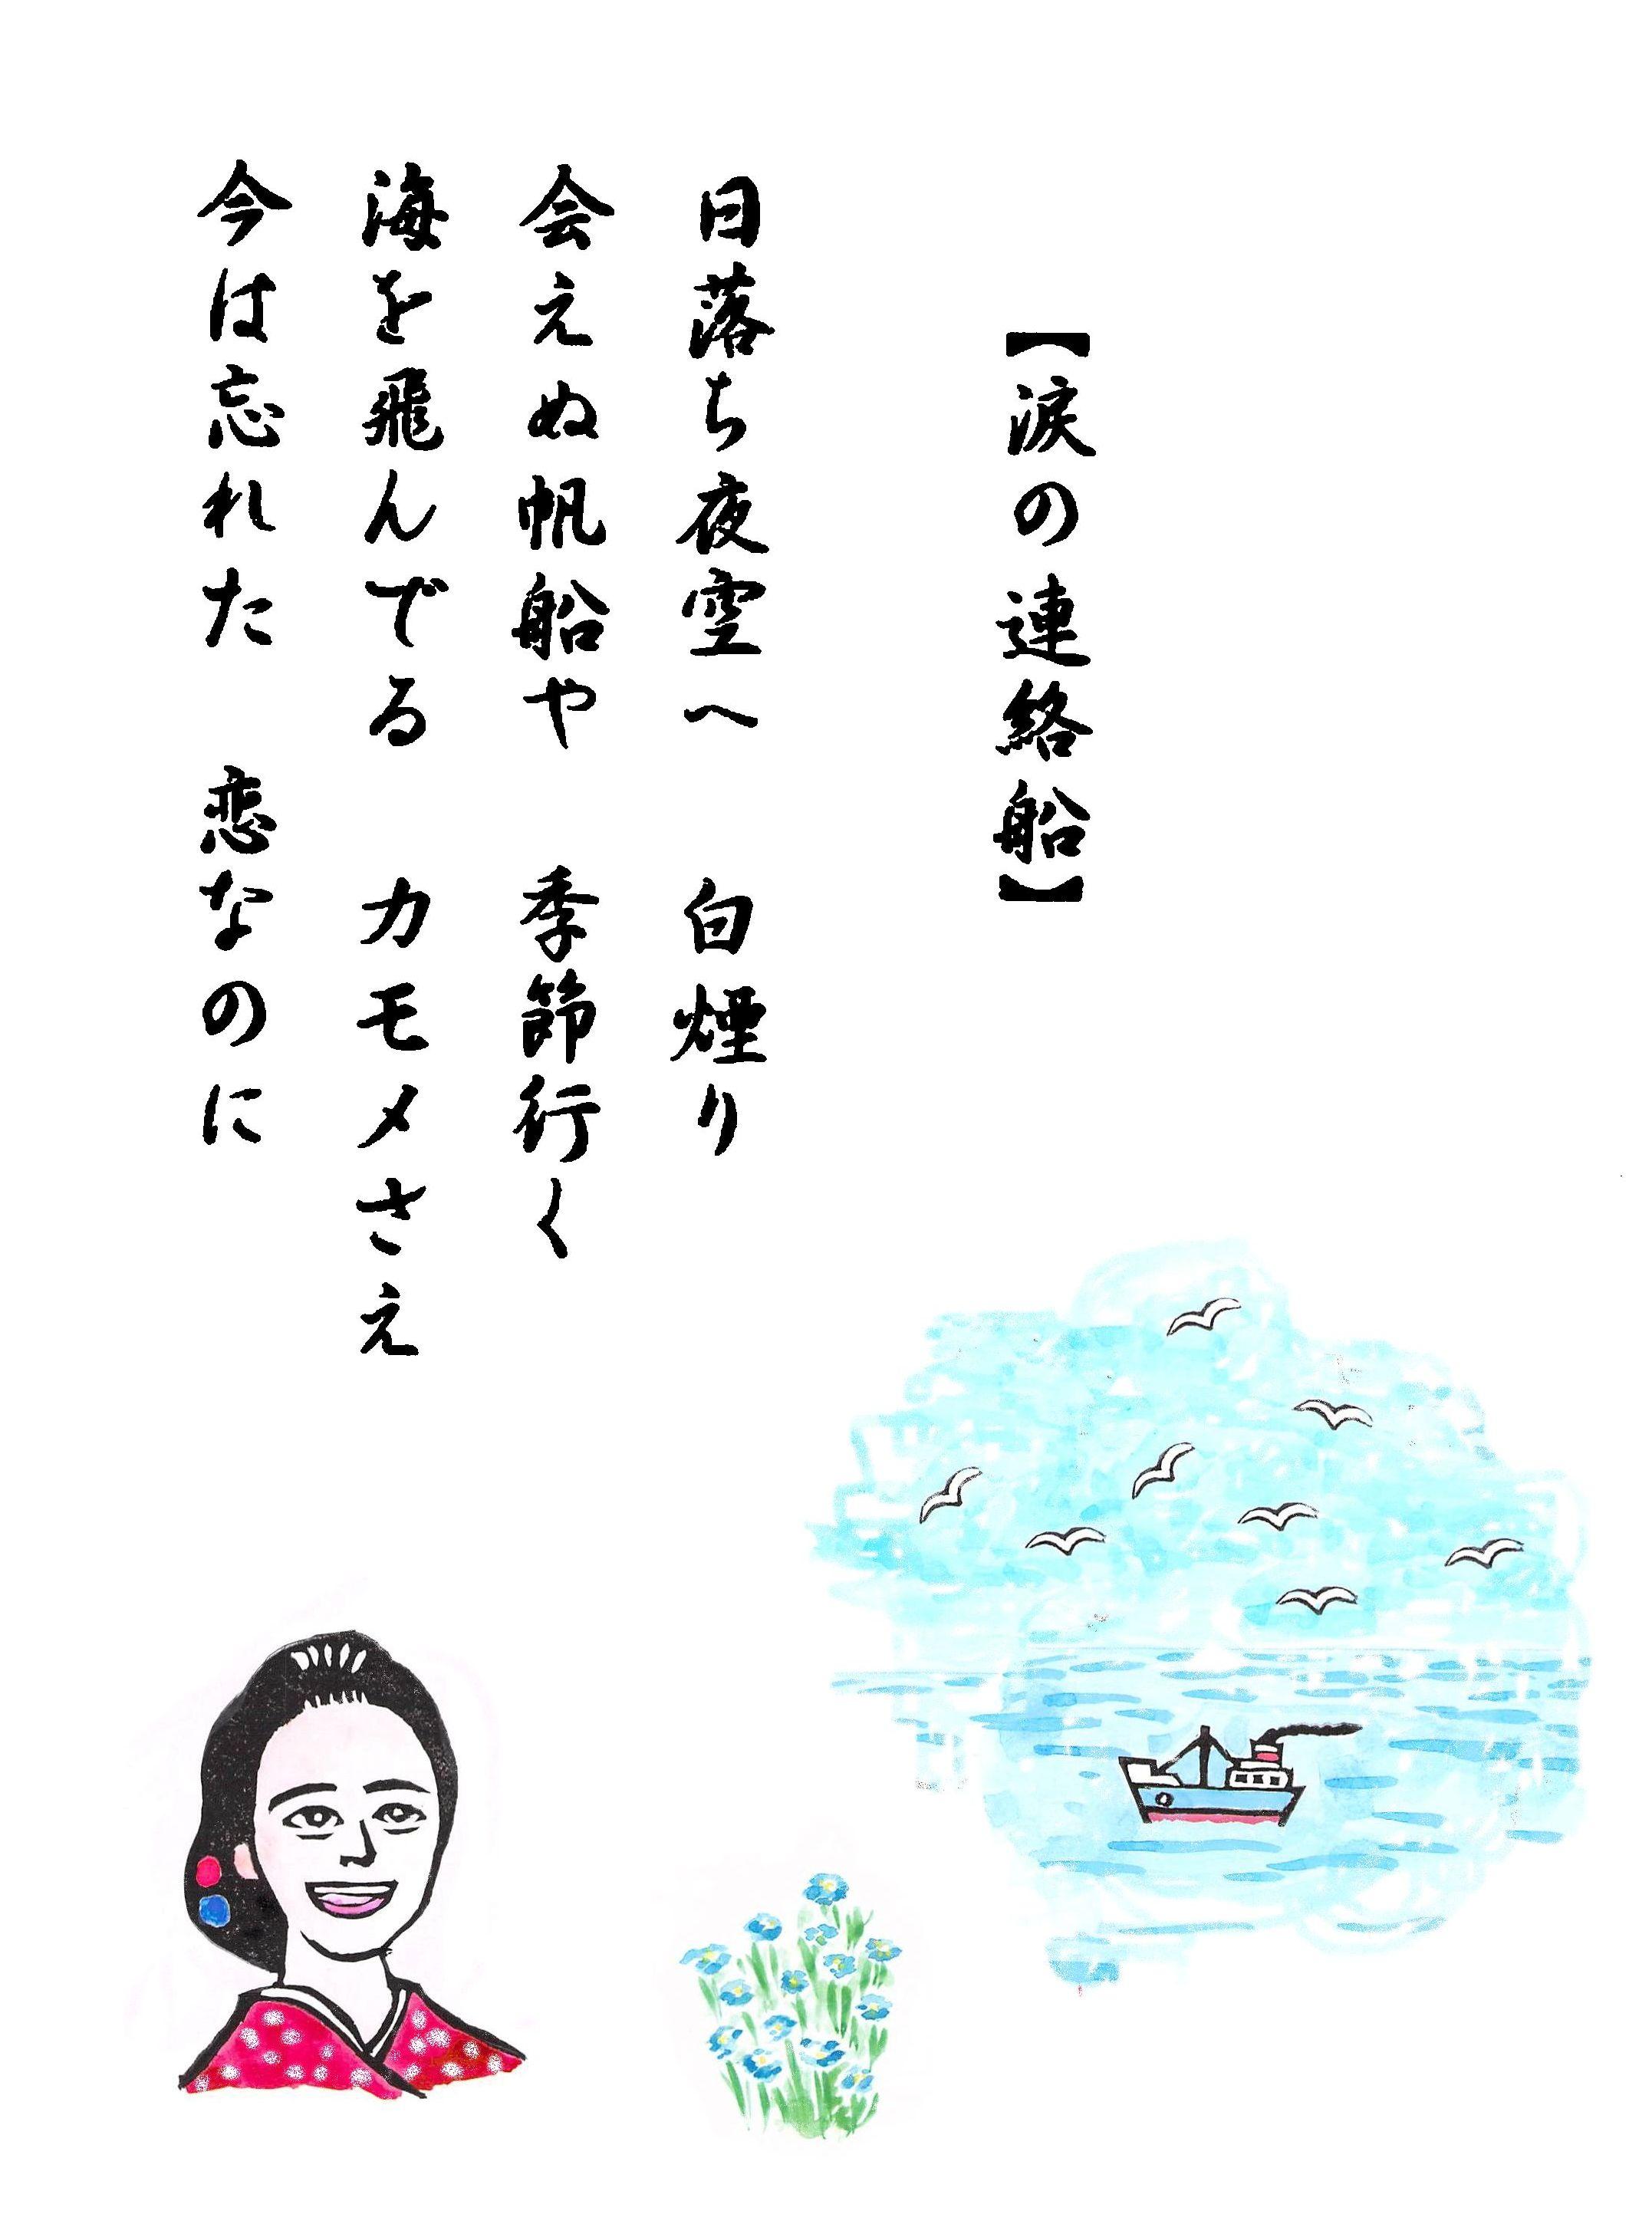 【涙の連絡船】
日落ち夜空へ　白煙り
会えぬ帆船や　季節行く
海を飛んでる　カモメさえ
今は忘れた　恋なのに